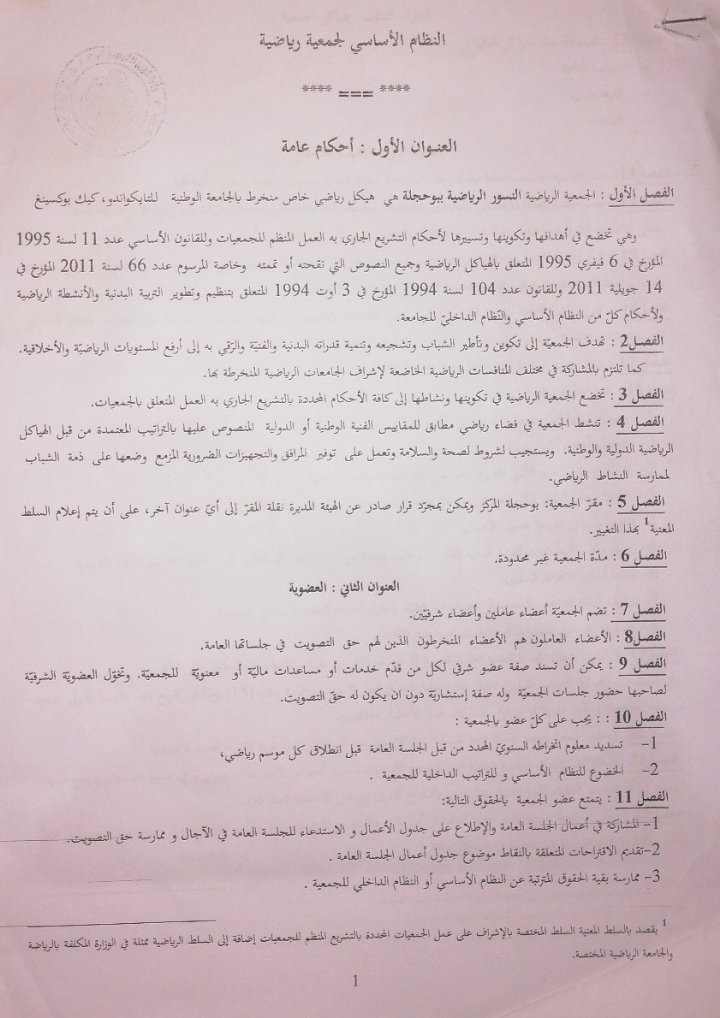 النظام الأساسي لجمعية رياضية
**** === ****
العنوان الأول : أحكام عامة
الفصل الأول : الجمعية الرياضية النسور الرياضية ببوحجلة هي هيكل رياضي خاص منخرط بالجامعة الوطنية للتايكواندو، كيك بوكسينغ
وهي تخضع في أهدافها وتكوينها وتسييرها لأحكام التشريع الجاري به العمل المنظم للجمعيات وللقانون الأساسي عدد 11 لسنة 1995
المؤرخ في 6 فيفري 1995 المتعلق بالهياكل الرياضية وجميع النصوص التي نقحته أو تممته وخاصة المرسوم عدد 66 لسنة 2011 المؤرخ في
14 جويلية 2011 وللقانون عدد 104 لسنة 1994 المؤرخ في 3 أوت 1994 المتعلق بتنظيم وتطوير التربية البدنية والأنشطة الرياضية
ولأحكام كلّ من النظام الأساسي والنّظام الداخليّ للجامعة.
الفصل2 : تهدف الجمعيّة إلى تكوين وتأطير الشباب وتشجيعه وتنمية قدراته البدنية والفنيّة والرّقي به إلى أرفع المستويات الرياضيّة والأخلاقية.
كما تلتزم بالمشاركة في مختلف المنافسات الرياضية الخاضعة لإشراف الجامعات الرياضية المنخرطة بها.
الفصل 3 : تخضع الجمعية الرياضية في تكوينها ونشاطها إلى كافة الأحكام المحددة بالتشريع الجاري به العمل المتعلق بالجمعيات.
الفصل 4 : تنشط الجمعية في فضاء رياضي مطابق للمقاييس الفنية الوطنية أو الدولية المنصوص عليها بالتراتيب المعتمدة من قبل الهياكل
الرياضية الدولية والوطنية. ويستجيب لشروط لصحة والسلامة وتعمل على توفير المرافق والتجهيزات الضرورية المزمع وضعها على ذمة الشباب
لممارسة النشاط الرياضي.
الفصل 5 : مقرّ الجمعية: بوحجلة المركز ويمكن بمجرّد قرار صادر عن الهيئة المديرة نقلة المقرّ إلى أيّ عنوان آخر، على أن يتم إعلام السلط
المعنية1 بهذا التغيير.
الفصل 6 : مدّة الجمعية غير محدودة.
العنوان الثاني : العضوية
الفصل 7 : تضم الجمعيّة أعضاء عاملين وأعضاء شرفيّين.
الفصل8 : الأعضاء العاملون هم الأعضاء المنخرطون الذين لهم حق التصويت في جلساتها العامة.
الفصل 9 : يمكن أن تسند صفة عضو شرفي لكل من قدّم خدمات أو مساعدات ماليّة أو معنويّة للجمعيّة. وتخوّل العضويّة الشرفيّة
لصاحبها حضور جلسات الجمعيّة وله صفة إستشاريّة دون ان يكون له حقّ التصويت.
الفصل 10 : : يجب على كلّ عضو بالجمعية :
1- تسديد معلوم انخراطه السنويّ المحدد من قبل الجلسة العامة قبل انطلاق كل موسم رياضي،
2- الخضوع للنظام الأساسي و للتراتيب الداخلية للجمعية .
الفصل 11 : يتمتع عضو الجمعية بالحقوق التالية:
1- المشاركة في أعمال الجلسة العامة والإطلاع على جدول الأعمال و الاستدعاء للجلسة العامة في الآجال و ممارسة حق التصويت.
2-تقديم الاقتراحات المتعلقة بالنقاط موضوع جدول أعمال الجلسة العامة .
3- ممارسة بقية الحقوق المترتبة عن النظام الأساسي أو النظام الداخلي للجمعية .
1 يقصد بالسلط المعنية السلط المختصة بالإشراف على عمل الجمعيات المحددة بالتشريع المنظم للجمعيات إضافة إلى السلط الرياضية ممثلة في الوزارة المكلفة بالرياضة
والجامعة الرياضية المختصة.
1